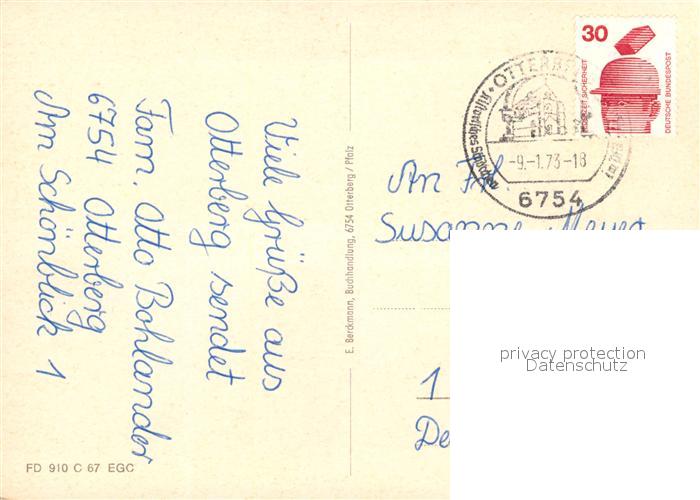 Viele Grüße aus
Otterberg sendet
Fam. Otto Bohlander
6754 Otterberg
Am Schönblick 1
FD 910 C 67 EGC
E. Berckmann, Buchhandlung, 6754 Otterberg / Pfalz
30
JEDERZEIT SICHERHEIT
DEUTSCHE BUNDESPOST
OTTERBERG
-9.-1.73-18
6754
An Frl.
Susanne Meyer
1
De
privacy protection
Datenschutz